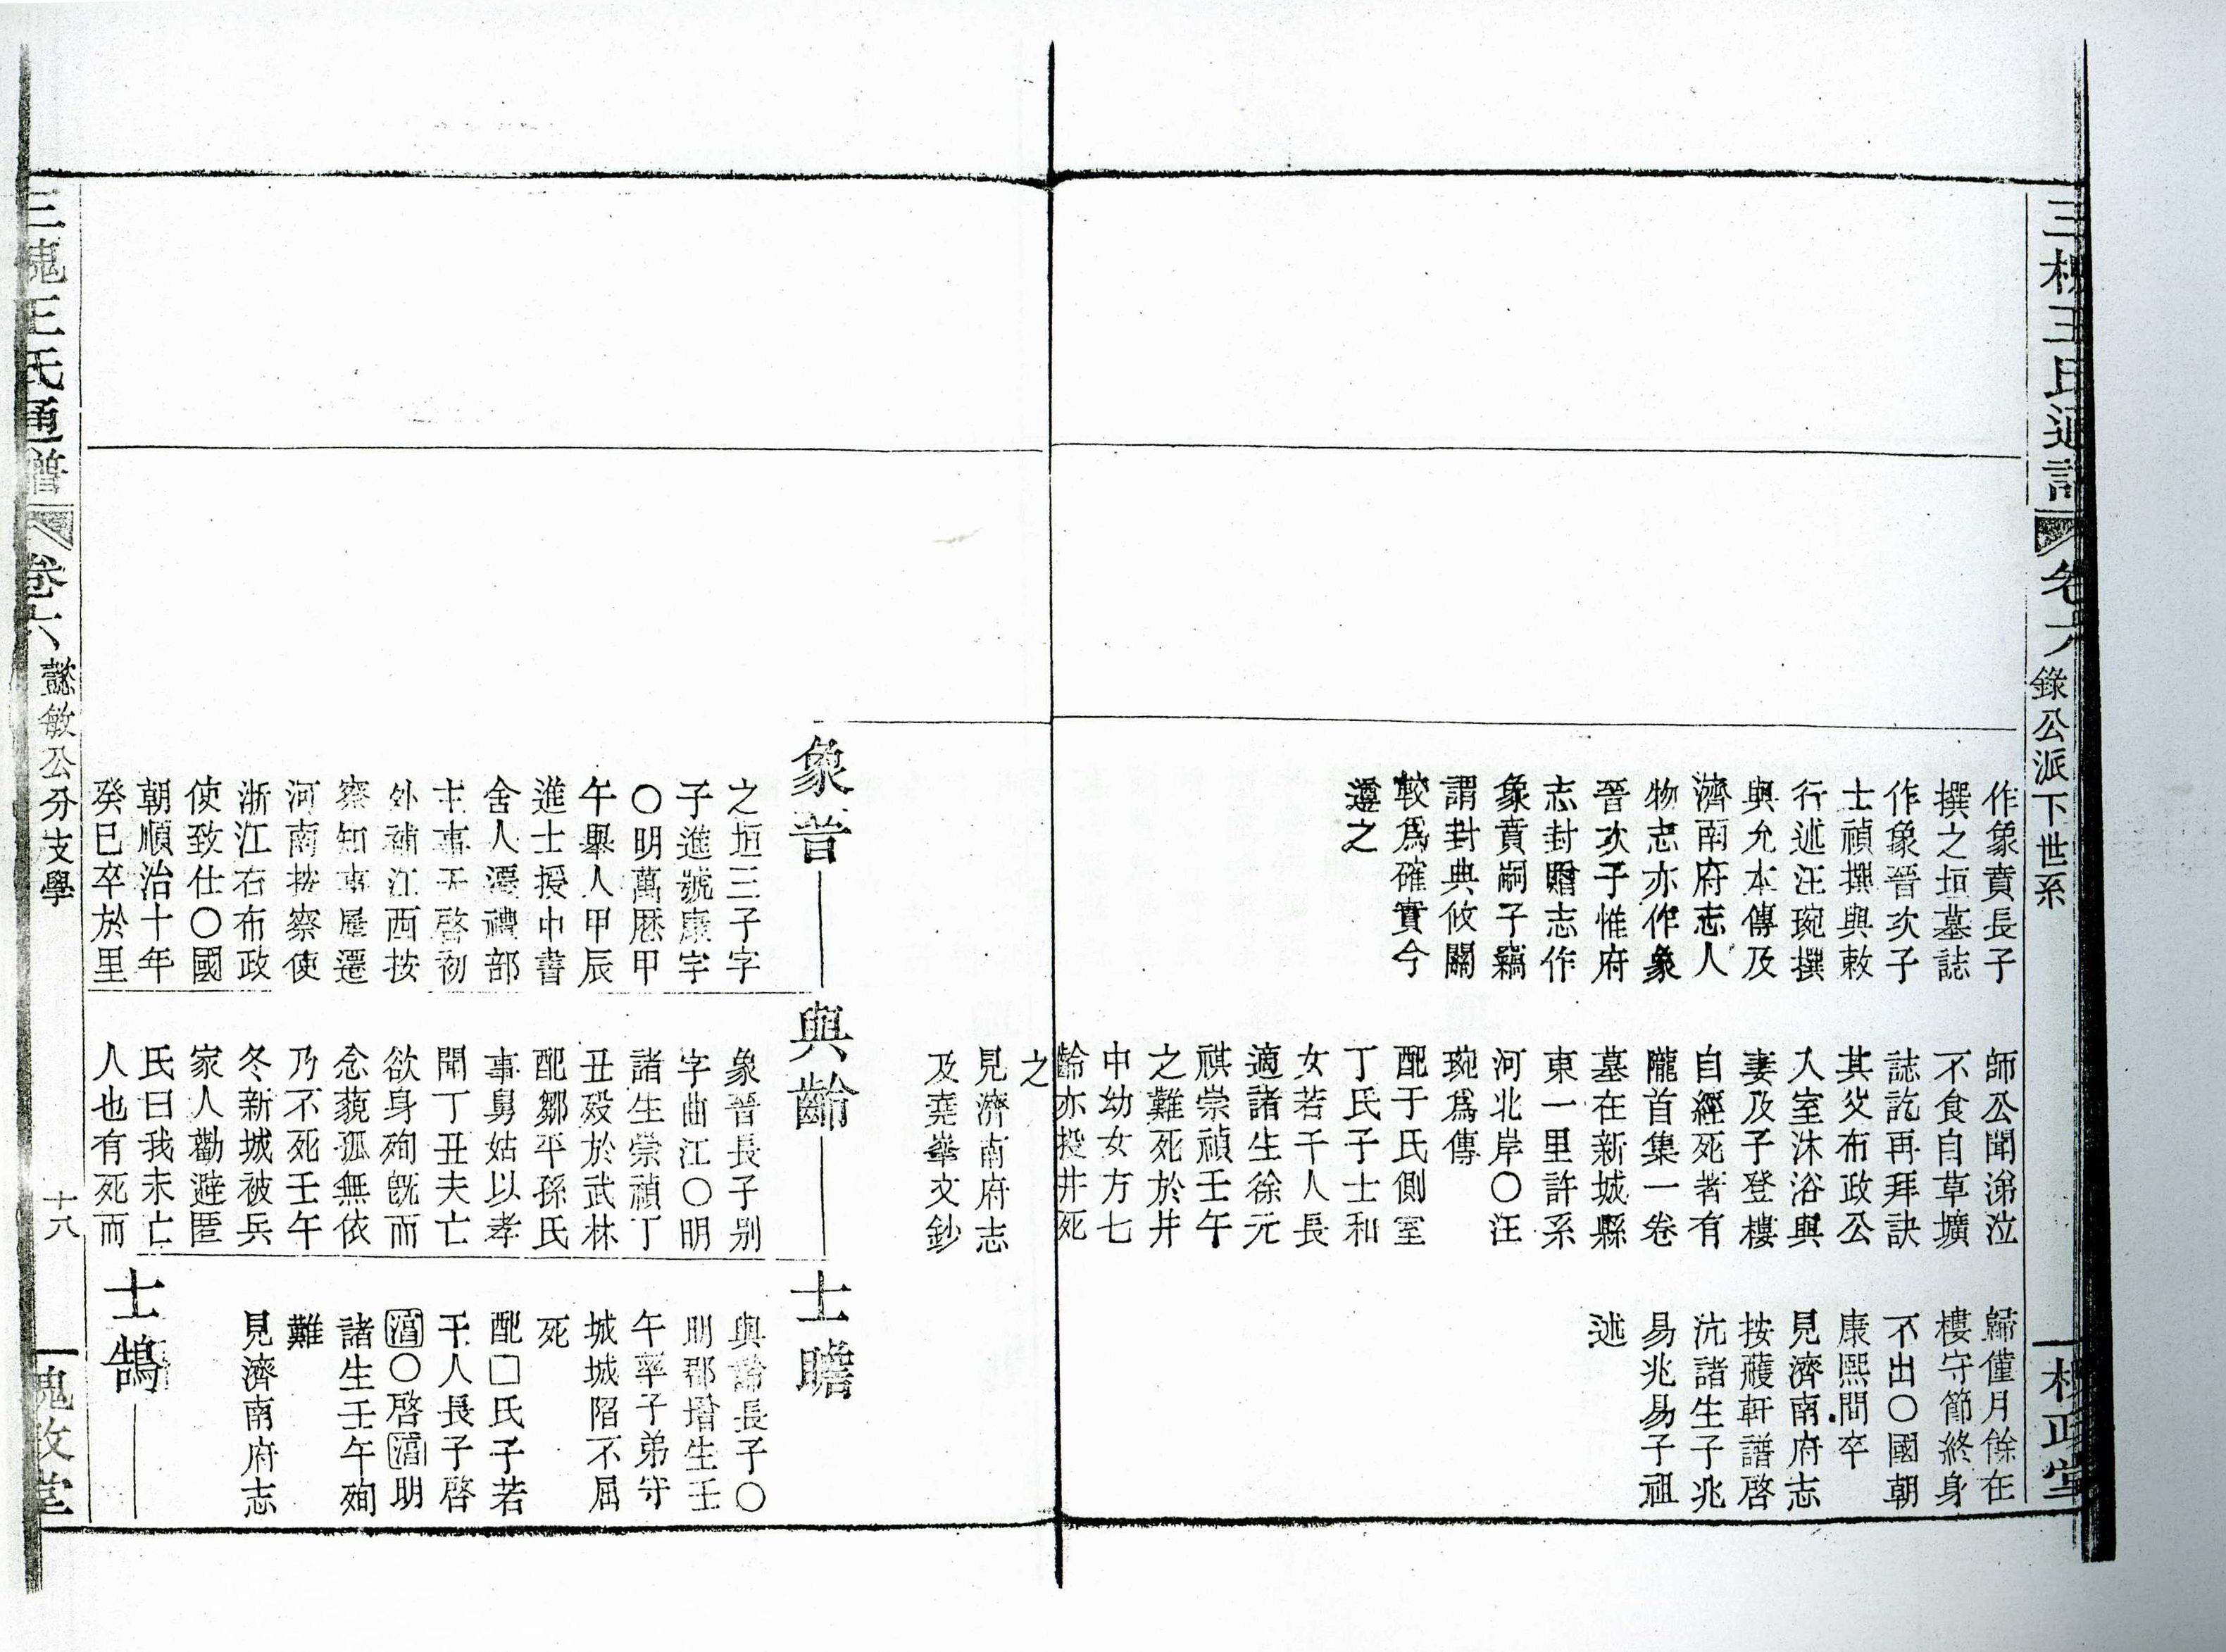 三槐王氏通譜
卷六
錄公派下世系
槐政堂
作象賁長子
撰之垣墓誌
作象晉次子
士禎撰與敕
行述汪琬撰
與允本傳及
濟南府志人
物志亦作象
晉次子惟府
志封贈志作
象賁嗣子竊
謂封典攸關
較爲確實今
遵之
師公聞涕泣
不食自草壙
誌訖再拜訣
其父布政公
入室沐浴與
妻及子登樓
自經死著有
隴首集一卷
墓在新城縣
東一里許系
河北岸○汪
琬爲傳
配于氏側室
丁氏子士和
女若干人長
適諸生徐元
祺崇禎壬午
之難死於井
中幼女方七
齡亦投井死
之
見濟南府志
及堯峯文鈔
歸僅月餘在
樓守節終身
不出○國朝
康熙間卒
見濟南府志
按蔭軒譜啓
沆諸生子兆
易兆易子祖
述
象晉
之垣三子字
子進號康宇
○明萬曆甲
午舉人甲辰
進士授中書
舍人遷禮部
主事天啓初
外補江西按
察知事屢遷
河南按察使
浙江右布政
使致仕○國
朝順治十年
癸巳卒於里
與齡
象晉長子別
字曲江○明
諸生崇禎丁
丑歿於武林
配鄒平孫氏
事舅姑以孝
聞丁丑夫亡
欲身殉旣而
念藐孤無依
乃不死壬午
冬新城被兵
家人勸避匿
氏曰我未亡
人也有死而
士瞻
與齡長子○
明郡增生壬
午率子弟守
城城陷不屈
死
配□氏子若
干人長子啓
涽○啓涽明
諸生壬午殉
難
見濟南府志
士鵠
三槐王氏通譜
卷六
懿敏公分支學
十八
槐政堂